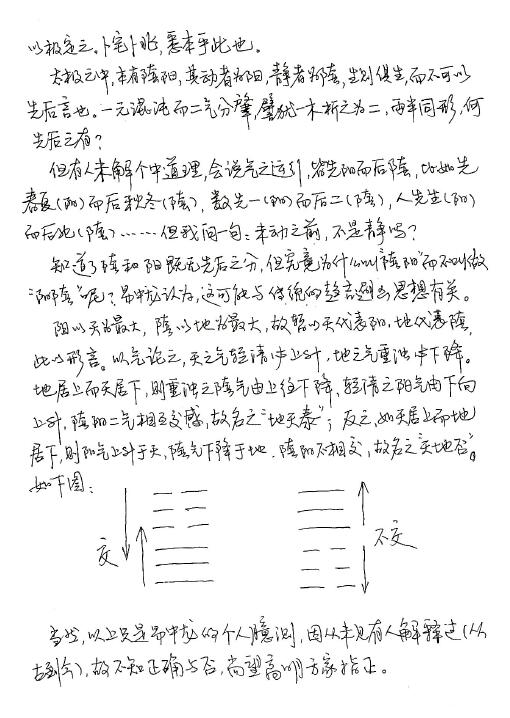 以极定之。卜宅卜兆，悉本乎此也。
太极之中，本有陰阳，其动者为阳，静者为陰，生则俱生，而不可以
先后言也。一元混沌而二气分肇，譬犹一木析之为二，两半同形，何
先后之有？
但有人未解个中道理，会说气之运行，皆先阳而后陰，比如先
春夏（阳）而后秋冬（陰），数先一（阳）而后二（陰），人先生（阳）
而后死（陰）……但我问一句：未动之前，不是静吗？
知道了陰和阳既无先后之分，但究竟为什么叫“陰阳”而不叫做
“阳陰”呢？中龙认为，这可能与传统的思想有关。
阳以天为最大，陰以地为最大，故暂以天代表阳，地代表陰，
此以形言。以气论之，天之气轻清而上升，地之气重浊而下降。
地居上而天居下，则重浊之陰气由上往下降，轻清之阳气由下向
上升，陰阳二气相互交感，故名之“地天泰”；反之，如天居上而地
居下，则阳气上升于天，陰气下降于地，陰阳不相交，故名之“天地否”。
如下图：
交
不交
当然，以上只是中龙的个人臆测，因从未见有人解释过（从
古到今），故不知正确与否，尚望高明方家指正。